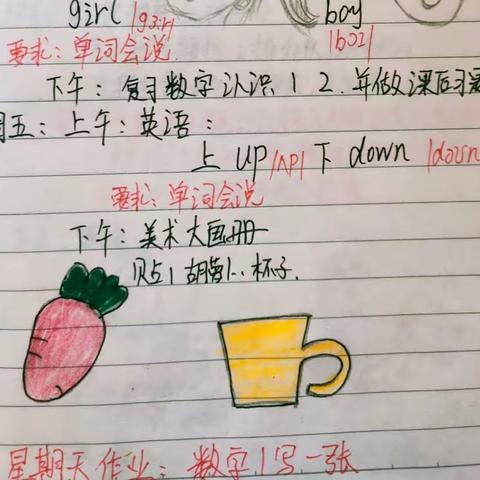 girl /gɜːrl boy
要求：单词会说. /bɔɪ/
下午：复习数字认识1 2.并做课后习题
周五：上午：英语：
上 up /ʌp/ 下 down /daʊn
要求：单词会说
下午：美术大画册
贝占1 胡萝卜、杯子.
星期天作业：数字1写一张